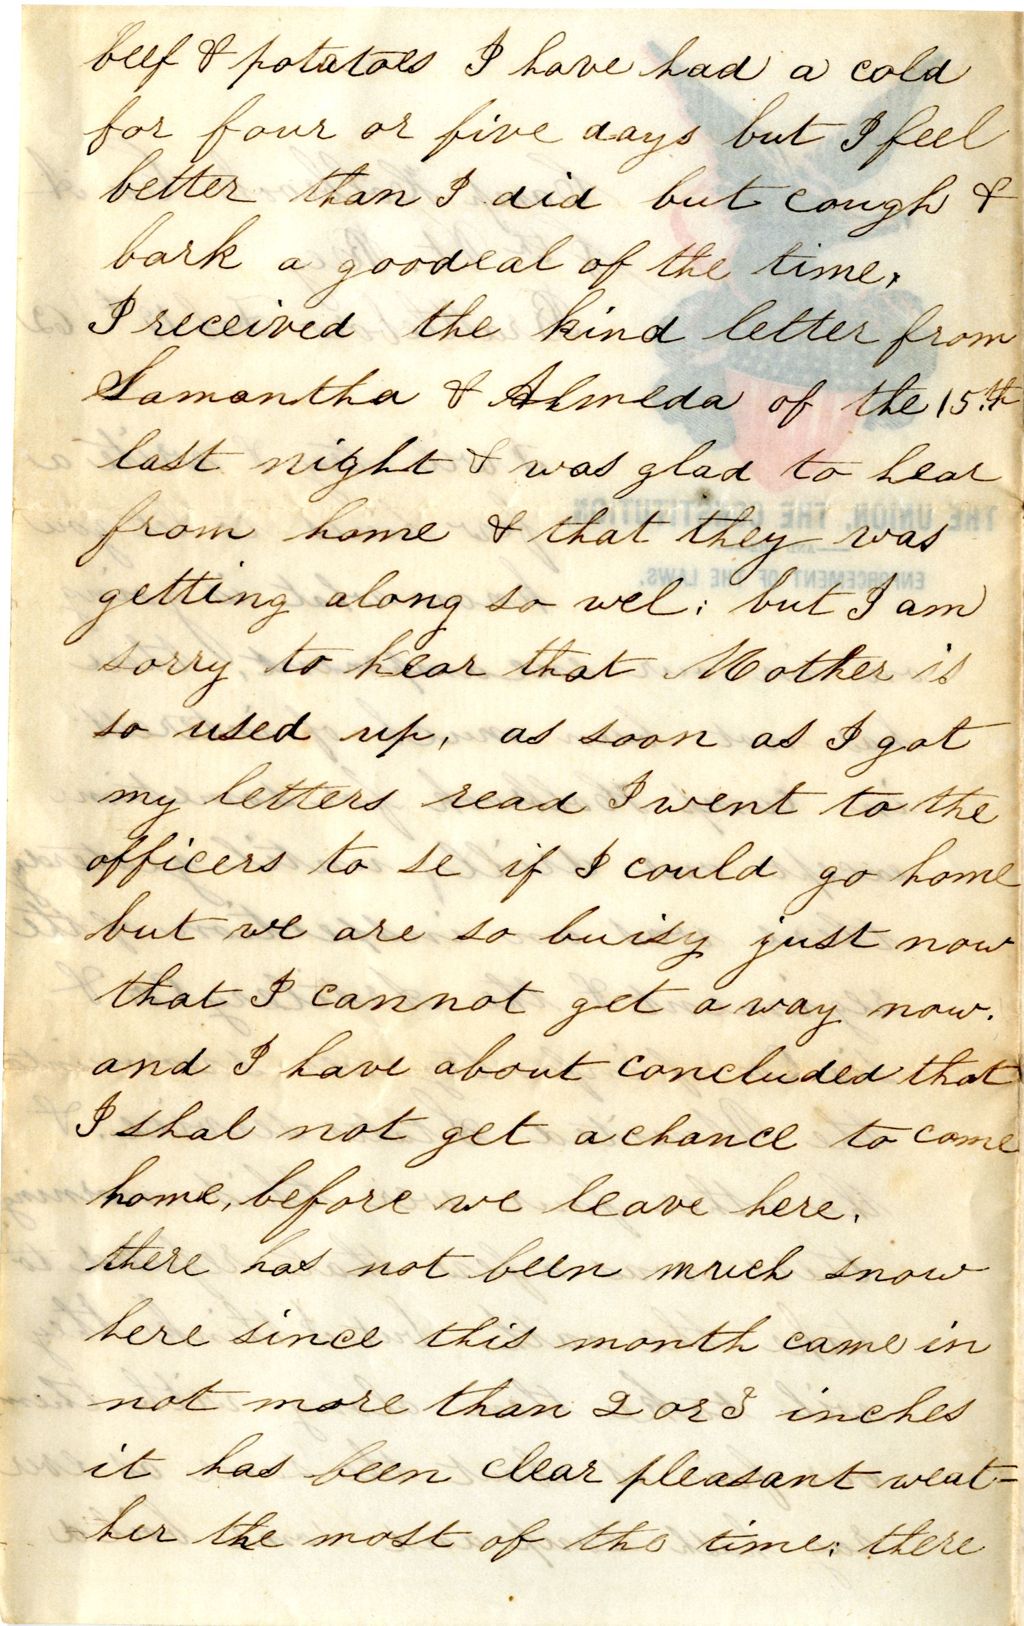 beef & potatoes I have had a cold
for four or five days but I feel
better than I did but cough &
bark a goodeal of the time,
I received the kind letter from
Samantha & Almeda of the 15.th
last night & was glad to hear
from home & that they was
getting along so wel; but I am
sorry to hear that Mother is
so used up, as soon as I got
my letters read I went to the
officers to se if I could go home
but we are so buisy just now
that I cannot get away now.
and I have about concluded that
I shal not get a chance to come
home, before we leave here.
there has not been much snow
here since this month came in
not more than 2 or 3 inches
it has been clear pleasant weat=
her the most of the time; there
THE UNION, THE CONSTITUTION
AND
ENFORCEMENT OF THE LAWS.